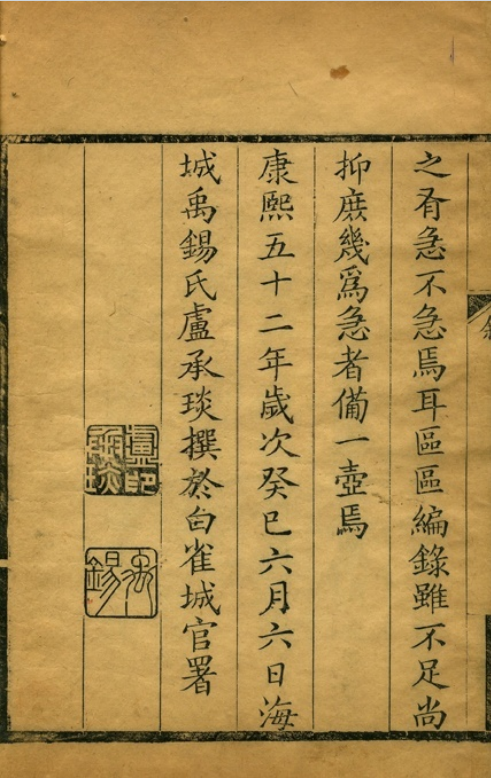 之有急不急焉耳區區編錄雖不足尚
抑庶幾爲急者備一壺焉
康熙五十二年歲次癸巳六月六日海
城禹錫氏盧承琰撰於白雀城官署
盧承琰印
禹錫